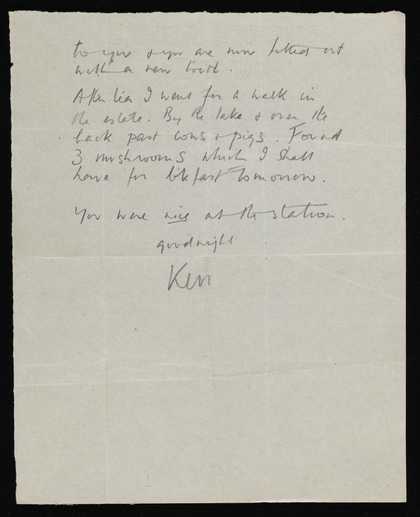 to you & you are now fitted out
with a new tooth.
After tea I went for a walk in
the estate. By the lake & over the
back past cows & pigs. Found
3 mushrooms which I shall
have for bkfast tomorrow.
You were nice at the station.
goodnight
Ken